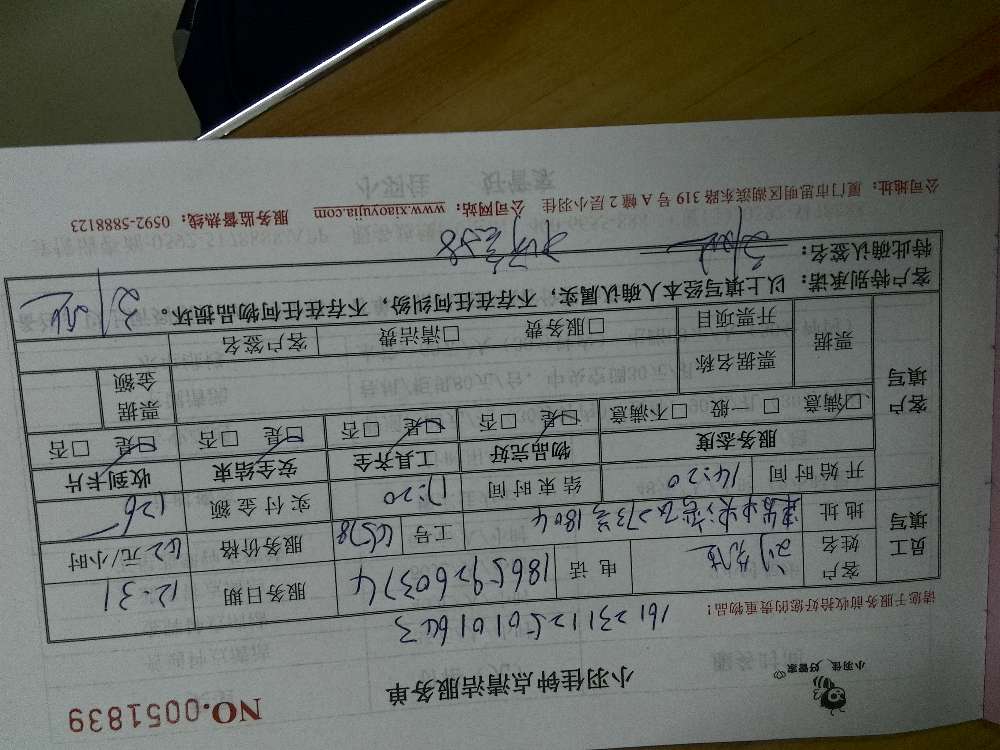 小羽佳 好管家
小羽佳钟点清洁服务单
NO.0051839
请您于服务前收拾好您的贵重物品!
员工填写
客户姓名
电话
18659260374
服务日期
12-31
地址
1804
工号
服务价格
62元/小时
开始时间
14:20
结束时间
17:20
实付金额
126
客户填写
服务态度
物品完好
工具齐全
安全结束
收到卡片
☑满意 □一般 □不满意
☑是 □否
☑是 □否
☑是 □否
☑是 □否
票据
票据名称
票据金额
开票项目
□服务费 □清洁费
客户签名
客户特别承诺:以上填写经本人确认属实,不存在任何纠纷,不存在任何物品损坏。
特此确认签名:
公司地址:厦门市思明区湖滨东路319号A幢2层小羽佳 公司网站:www.xiaoyujia.com 服务监督热线:0592-5888123